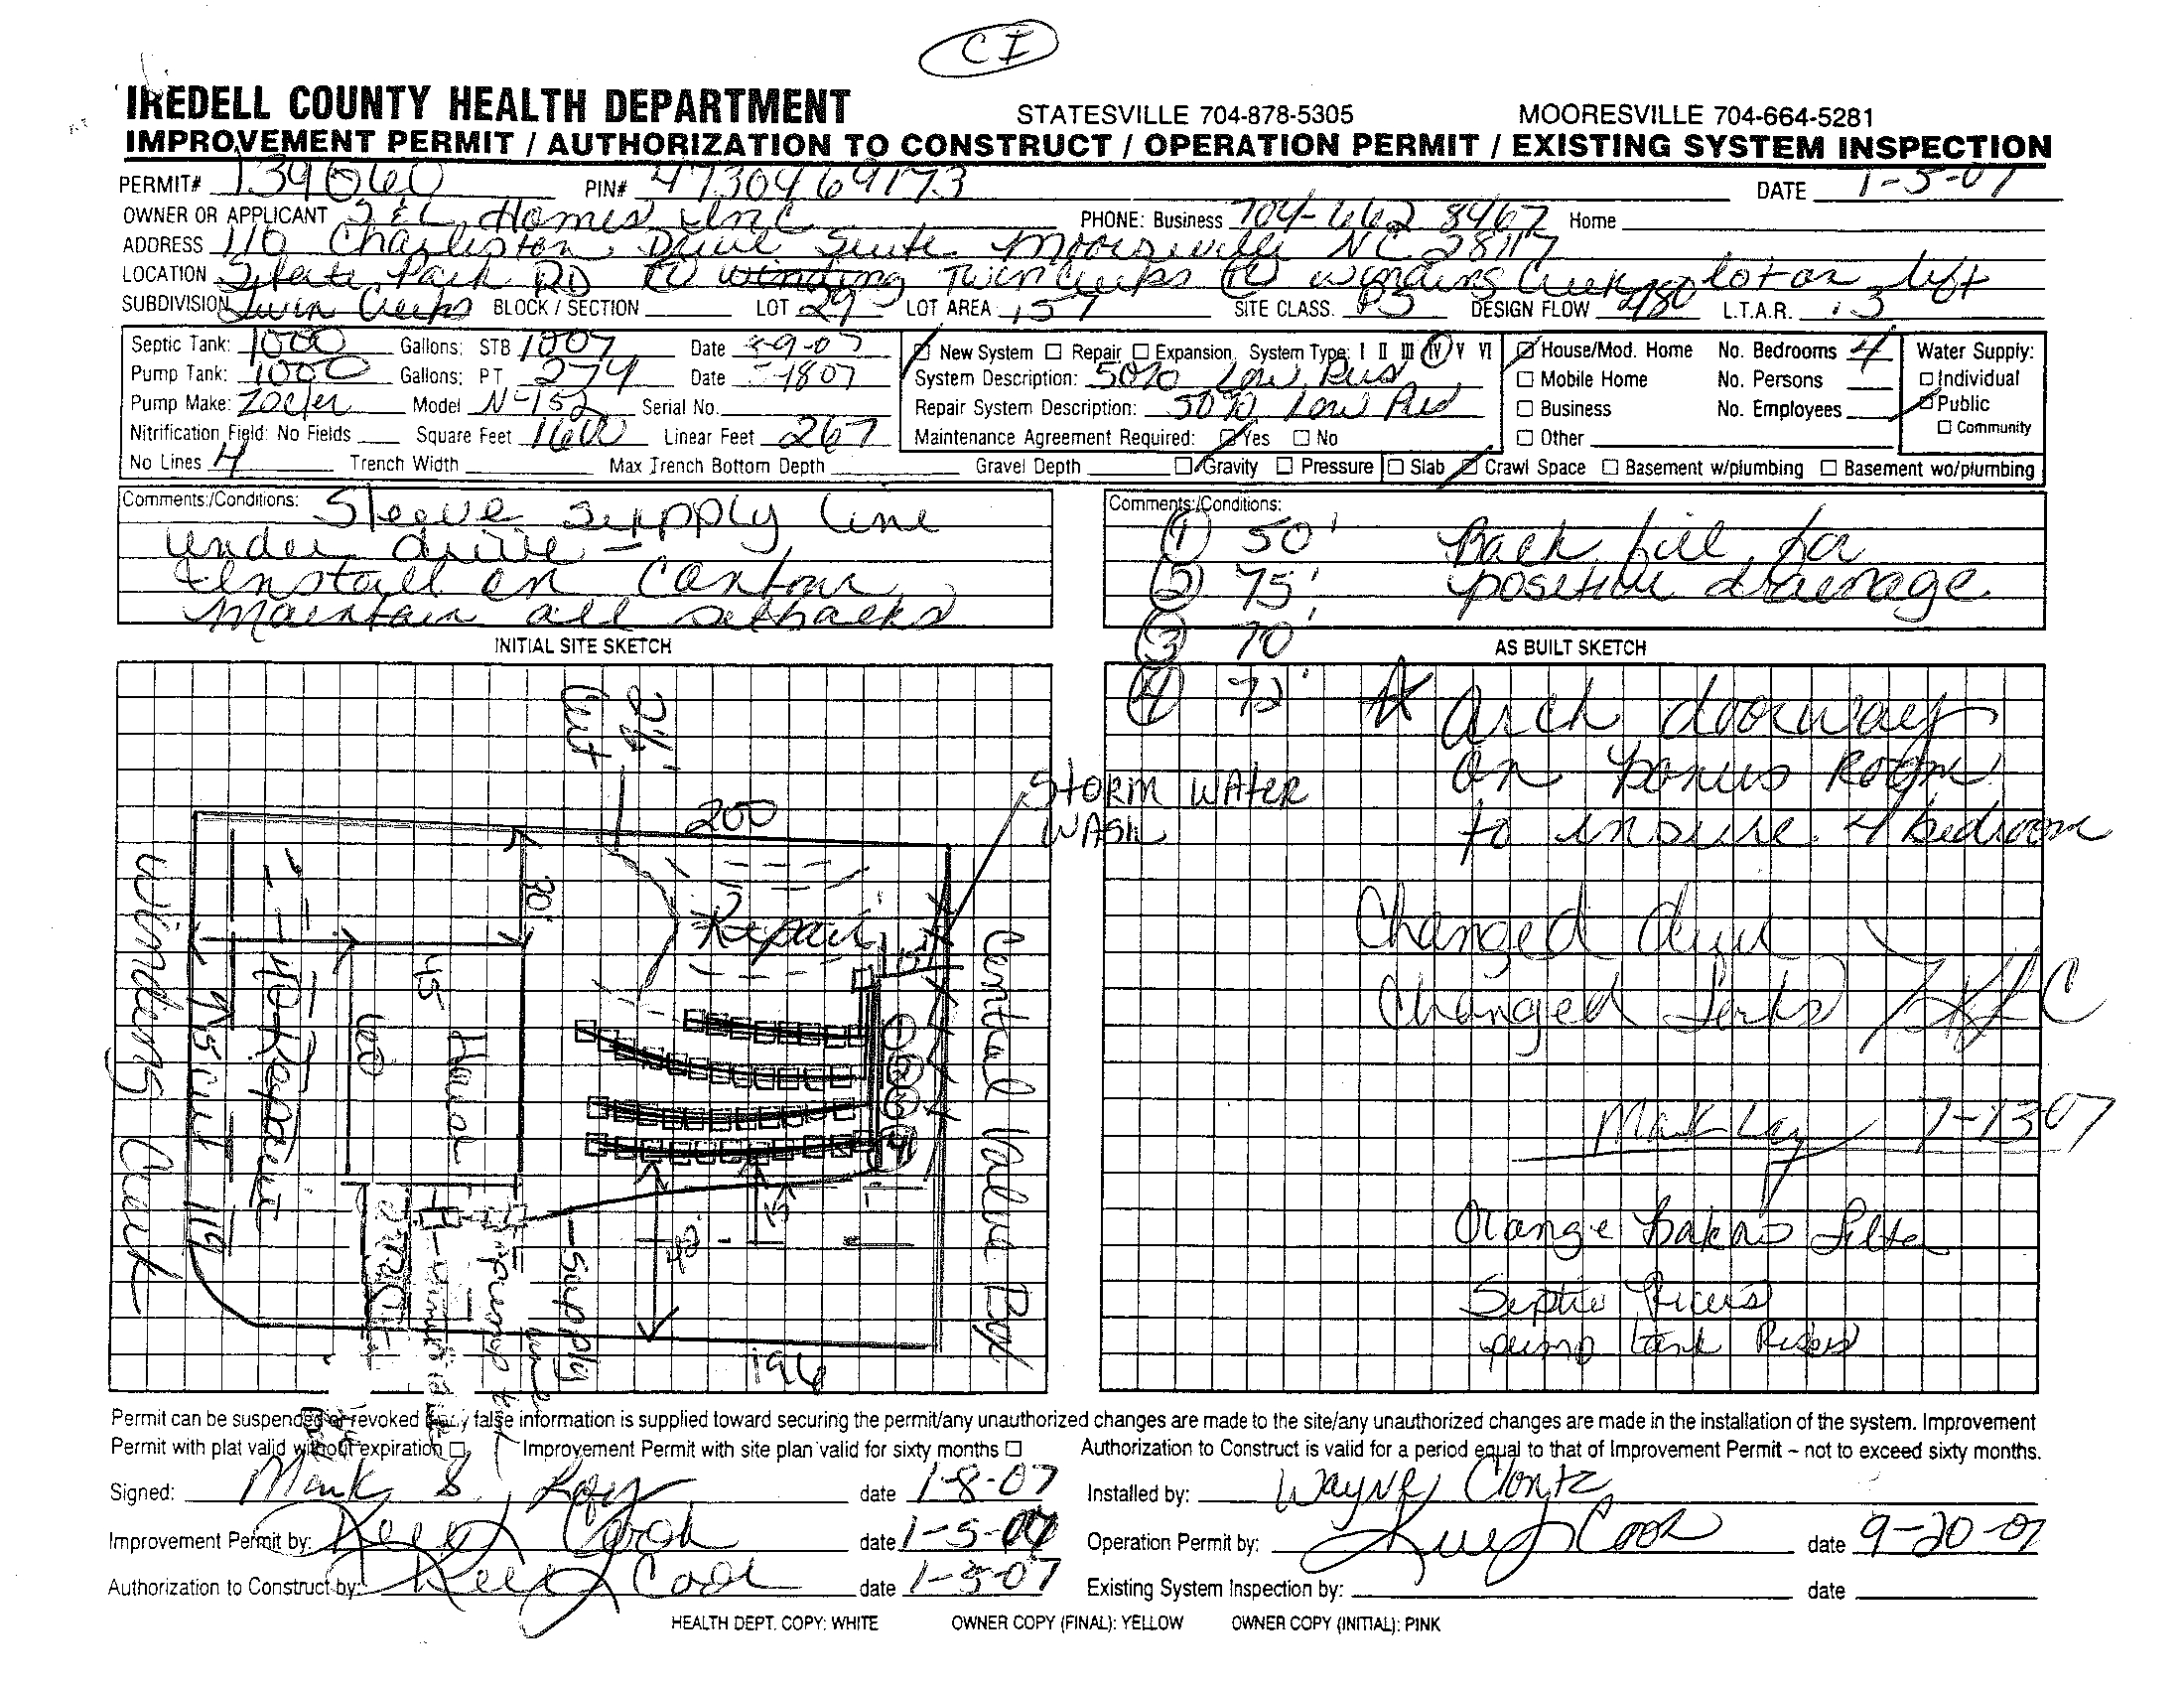 CI
IREDELL COUNTY HEALTH DEPARTMENT STATESVILLE 704-878-5305 MOORESVILLE 704-664-5281
IMPROVEMENT PERMIT / AUTHORIZATION TO CONSTRUCT / OPERATION PERMIT / EXISTING SYSTEM INSPECTION
PERMIT# 139060 PIN# 4730469173 DATE 1-5-07
OWNER OR APPLICANT Homes Inc PHONE: Business 704-662 8467 Home
ADDRESS 110 Charleston Drive Suite Mooresville NC 28117
LOCATION State Park RD winding Twin Creeks winding Creek lot on left
SUBDIVISION Twin Creeks BLOCK / SECTION LOT 29 LOT AREA .57 SITE CLASS. PS DESIGN FLOW 480 L.T.A.R. .3
Septic Tank: 1000 Gallons: STB 1007 Date -9-07 New System Repair Expansion System Type: I II III IV V VI House/Mod. Home No. Bedrooms 4 Water Supply:
Pump Tank: 1000 Gallons: PT 274 Date -1807 System Description: 50% Low Mobile Home No. Persons Individual
Pump Make: Zoeller Model N-152 Serial No. Repair System Description: 50% Low Business No. Employees Public
Nitrification Field: No Fields Square Feet 1600 Linear Feet 267 Maintenance Agreement Required: Yes No Other Community
No Lines 4 Trench Width Max Trench Bottom Depth Gravel Depth Gravity Pressure Slab Crawl Space Basement w/plumbing Basement wo/plumbing
Comments:/Conditions: Sleeve supply line
under drive -
Install on Contour
Maintain all setbacks
Comments:/Conditions:
1 50' Back fill for
2 75' positive drainage
3 70'
4 72'
INITIAL SITE SKETCH
AS BUILT SKETCH
2 1/2'
Cut
200
STORM WATER
WASH
Repair
20'
45
60
House
40 Repair
119
Winding Creek
Central Valve Box
1
2
3
4
15
15
40'
Supply line
196
* Arch doorway
on bonus Room
to insure 4 bedroom
Changed drive
Changed tanks
Mark Lay 7-13-07
Orange Filter
Septic Risers
pump tank Risers
Permit can be suspended or revoked if any false information is supplied toward securing the permit/any unauthorized changes are made to the site/any unauthorized changes are made in the installation of the system. Improvement
Permit with plat valid without expiration Improvement Permit with site plan valid for sixty months Authorization to Construct is valid for a period equal to that of Improvement Permit – not to exceed sixty months.
Signed: Mark S. Lay date 1-8-07 Installed by: Wayne Clontz
Improvement Permit by: Cook date 1-5-07 Operation Permit by: Cook date 9-20-07
Authorization to Construct by: Cook date 1-5-07 Existing System Inspection by: date
HEALTH DEPT. COPY: WHITE OWNER COPY (FINAL): YELLOW OWNER COPY (INITIAL): PINK